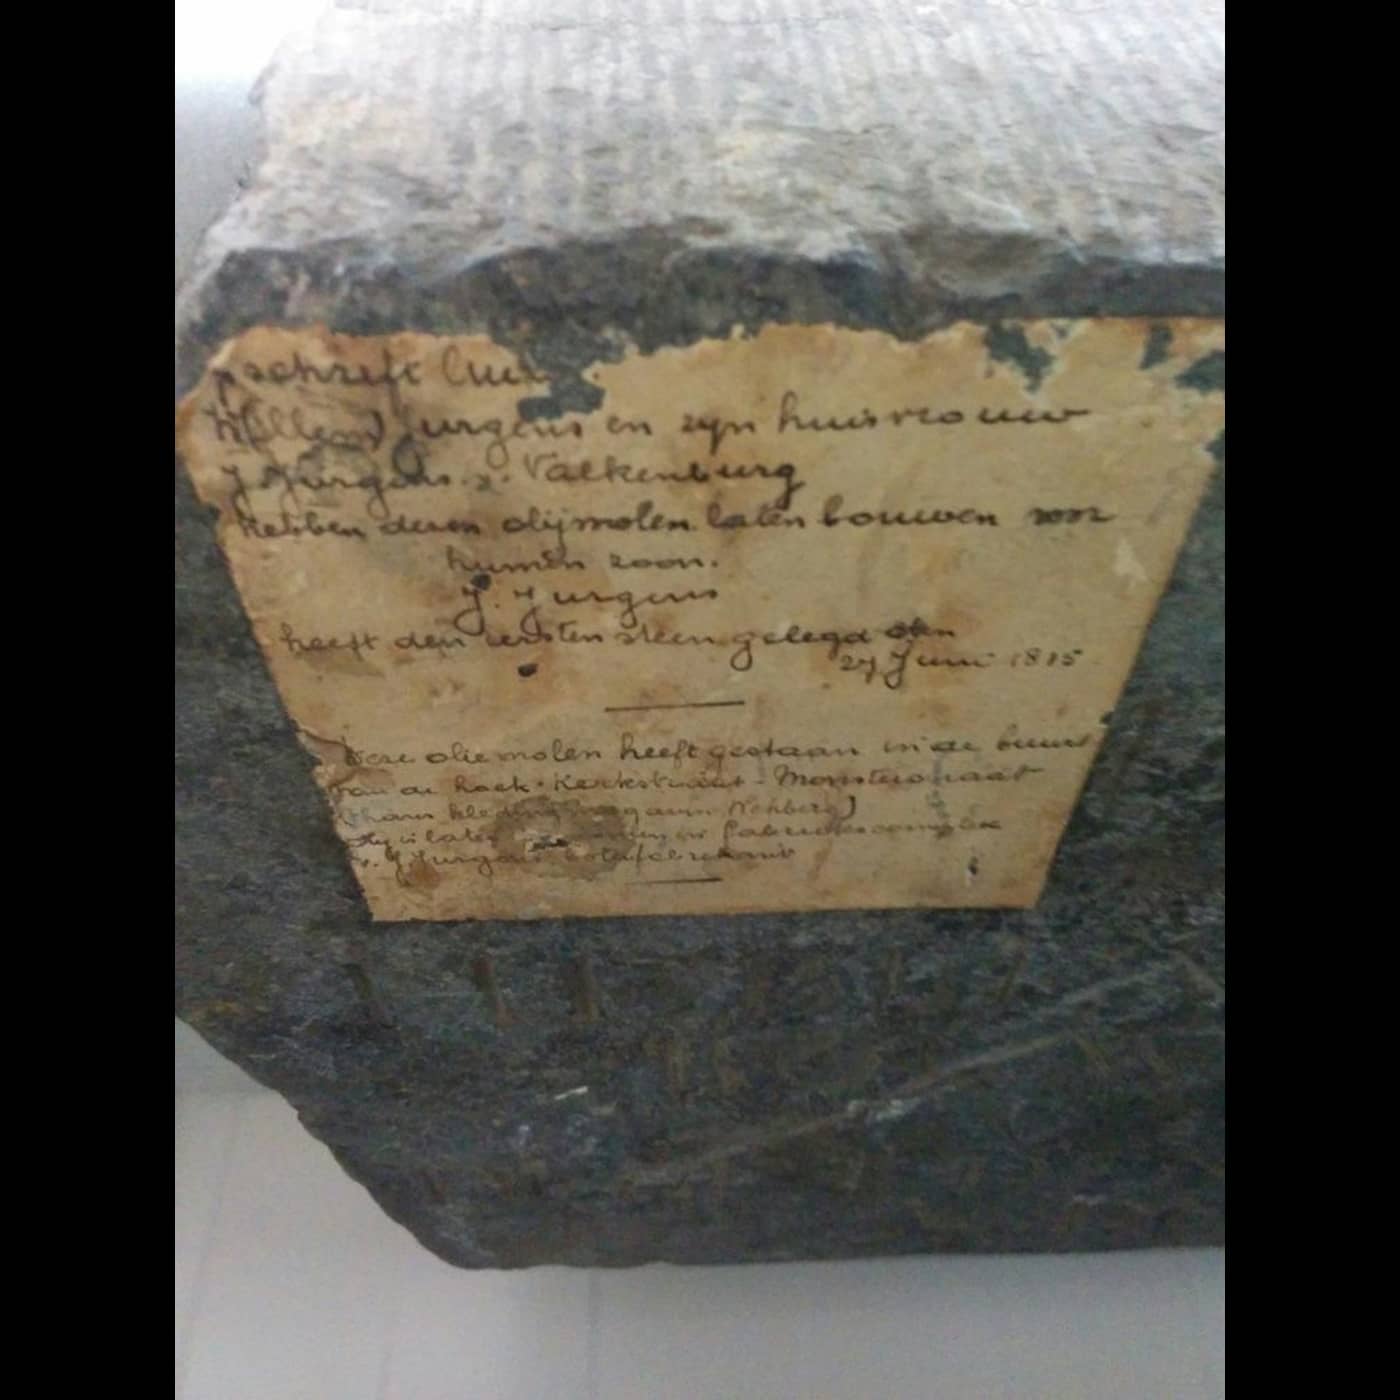 pschrift luid
Willem Jurgens en zyn huisvrouw
J. Jurgens. v. Valkenburg
hebben desen olijmolen laten bouwen voor
hunnen zoon.
J. Jurgens
heeft den eersten steen gelegd den
27 Juni 1815
Deze oliemolen heeft gestaan in de buurt
van de hoek Kerkstraat - Monsterstraat
(thans kleding magazijn Rehberg)
is later in fabriekscomplex
v. J. Jurgens boterfabrikant